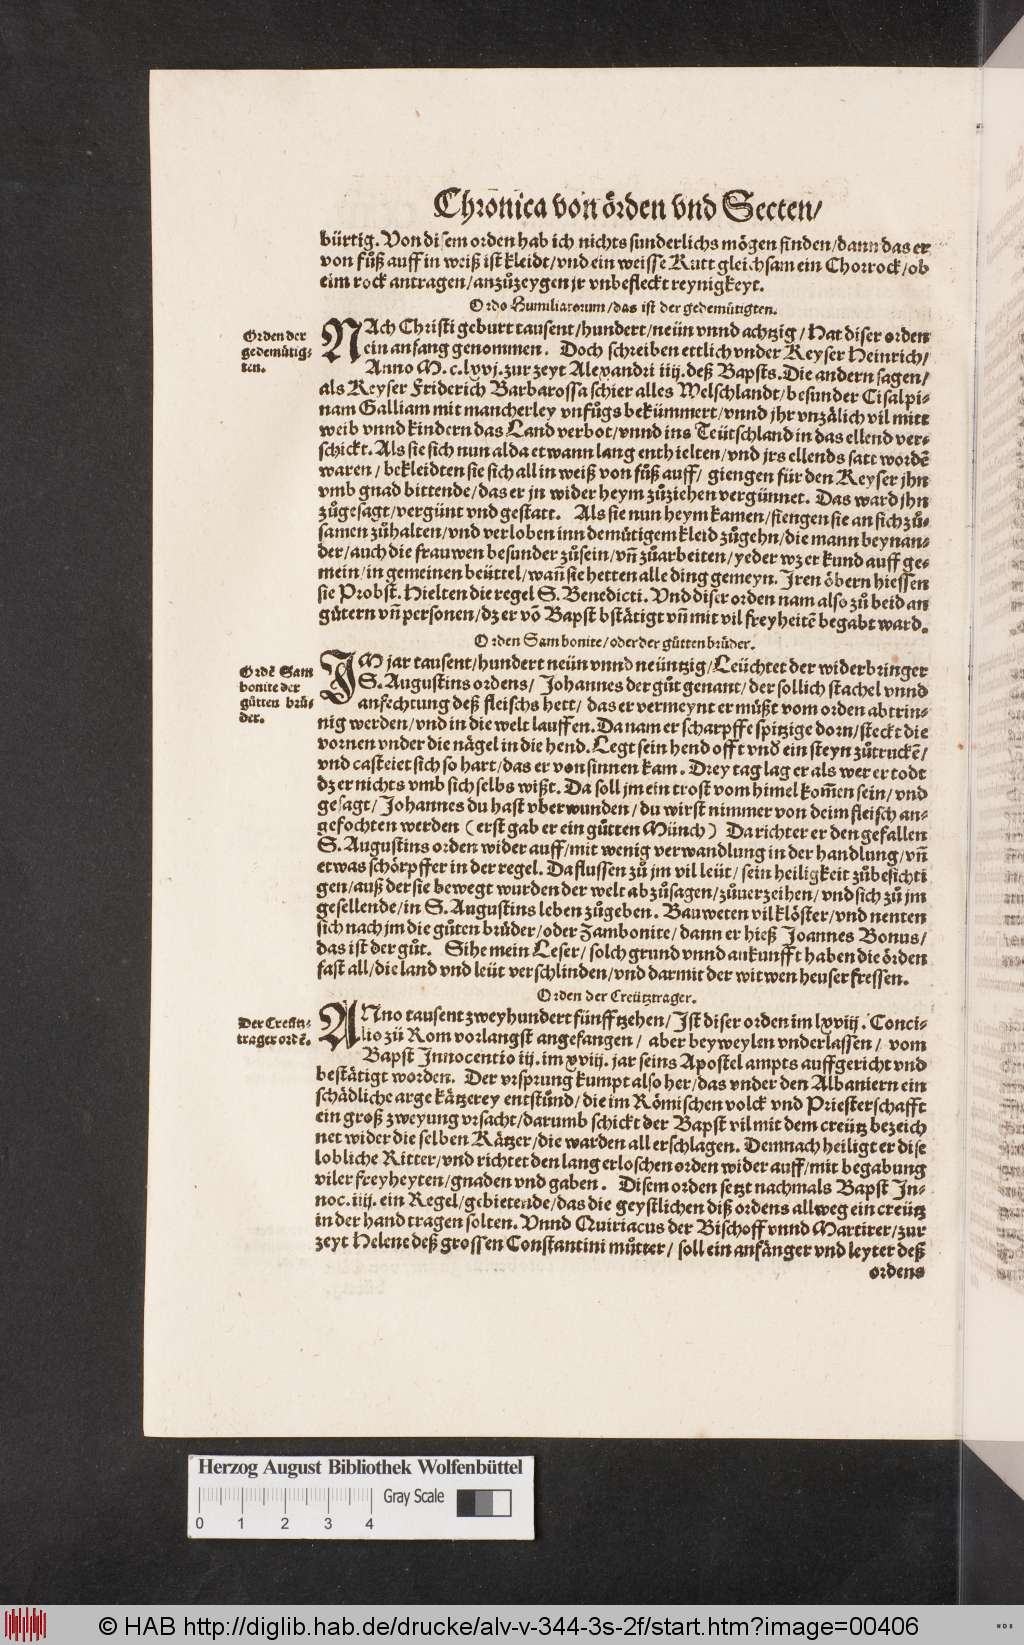 Chronica von örden vnd Secten/
bürtig. Von disem orden hab ich nichts sunderlichs mögen finden/ dann das er
von fůß auff in weiß ist kleidt/ vnd ein weisse Kutt gleichsam ein Chorrock/ ob
eim rock antragen/ anzůzeygen jr vnbefleckt reynigkeyt.
Ordo Humiliatorum/ das ist der gedemütigten.
Orden der
gedemütig-
ten.
NAch Christi geburt tausent/ hundert/ neün vnnd achzig/ Hat diser orden
ein anfang genommen. Doch schreiben ettlich vnder Keyser Heinrich/
Anno M. c. lvvj. zur zeyt Alexandri iiij. deß Bapsts. Die andern sagen/
als Keyser Friderich Barbarossa schier alles Welschlandt/ besunder Cisalpi-
nam Galliam mit mancherley vnfůgs bekümmert/ vnnd jhr vnzälich vil mitt
weib vnnd kindern das Land verbot/ vnnd ins Teütschland in das ellend ver-
schickt. Als sie sich nun alda etwann lang enthielten/ vnd jrs ellends satt wordẽ
waren/ bekleidten sie sich all in weiß von fůß auff/ giengen für den Keyser jhn
vmb gnad bittende/ das er jn wider heym zůziehen vergünnet. Das ward jhn
zůgesagt/ vergünt vnd gestatt. Als sie nun heym kamen/ fiengen sie an sich zů-
samen zůhalten/ vnd verloben inn demütigem kleid zůgehn/ die mann beynan-
der/ auch die frauwen besunder zůsein/ vñ zůarbeiten/ yeder wz er kund auff ge-
mein/ in gemeinen beüttel/ wañ sie hetten alle ding gemeyn. Iren öbern hiessen
sie Probst. Hielten die regel S. Benedicti. Vnd diser orden nam also zů beid an
gütern vñ personen/ dz er võ Bapst bstätigt vñ mit vil freyheitẽ begabt ward.
Orden Sambonite/ oder der gütten brüder.
Ordẽ Sam
bonite der
gütten brü-
der.
IM jar tausent/ hundert neün vnnd neüntzig/ Leüchtet der widerbringer
S. Augustins ordens/ Johannes der gůt genant/ der sollich stachel vnnd
anfechtung deß fleischs hett/ das er vermeynt er müßt vom orden abtrin-
nig werden/ vnd in die welt lauffen. Da nam er scharpffe spitzige dorn/ steckt die
vornen vnder die nägel in die hend. Legt sein hend offt vnd ein steyn zůtruckẽ/
vnd casteiet sich so hart/ das er von sinnen kam. Drey tag lag er als wer er todt
dz er nichts vmb sich selbs wißt. Da soll jm ein trost vom himel kom̃en sein/ vnd
gesagt/ Johannes du hast vberwunden/ du wirst nimmer von deim fleisch an-
gefochten werden (erst gab er ein gůtten Münch) Da richter er den gefallen
S. Augustins orden wider auff/ mit wenig verwandlung in der handlung/ vñ
etwas schörpffer in der regel. Da flussen zů jm vil leüt/ sein heiligkeit zůbesichti
gen/ auß der sie bewegt wurden der welt abzůsagen/ zůuerzeihen/ vnd sich zů jm
gesellende/ in S. Augustins leben zůgeben. Bauweten vil klöster/ vnd nenten
sich nach jm die gůten brüder/ oder Zambonite/ dann er hieß Joannes Bonus/
das ist der gůt. Sihe mein Leser/ solch grund vnnd ankunfft haben die örden
fast all/ die land vnd leüt verschlinden/ vnd darmit der witwen heuser fressen.
Orden der Creütztrager.
Der Creütz-
trager ordẽ.
ANno tausent zweyhundert fünfftzehen/ Ist diser orden im lxviij. Conci-
lio zů Rom vorlangst angefangen/ aber beyweylen vnderlassen/ vom
Bapst Innocentio iij. im xviij. jar seins Apostel ampts auffgericht vnd
bestätigt worden. Der vrsprung kumpt also her/ das vnder den Albaniern ein
schädliche arge kätzerey entstůnd/ die im Römischen volck vnd Priesterschafft
ein groß zweyung vrsacht/ darumb schickt der Bapst vil mit dem creütz bezeich
net wider die selben Kätzer/ die warden all erschlagen. Demnach heiligt er dise
lobliche Ritter/ vnd richtet den lang erloschen orden wider auff/ mit begabung
viler freyheyten/ gnaden vnd gaben. Disem orden setzt nachmals Bapst In-
noc. iiij. ein Regel/ gebietende/ das die geystlichen diß ordens allweg ein creütz
in der hand tragen solten. Vnnd Quiriacus der Bischoff vnnd Martirer/ zur
zeyt Helene deß grossen Constantini můtter/ soll ein anfänger vnd leyter deß
ordens
Herzog August Bibliothek Wolfenbüttel
Gray Scale
0 1 2 3 4
© HAB http://diglib.hab.de/drucke/alv-v-344-3s-2f/start.htm?image=00406